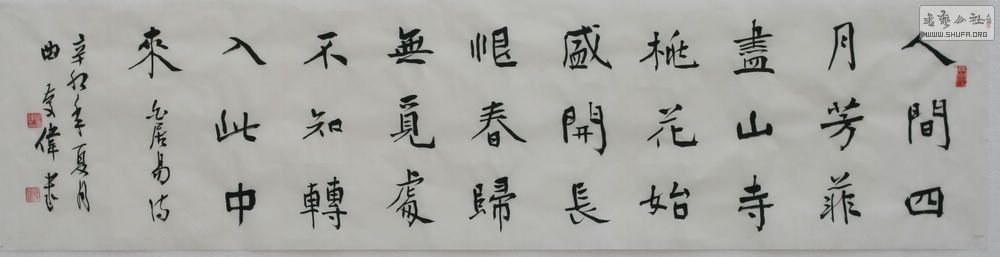 人間四
月芳菲
盡山寺
桃花始
盛開長
恨春歸
無覓處
不知轉
入此中
來 白居易诗
辛卯年夏月
曲 偉书
書藝公社
WWW.SHUFA.ORG